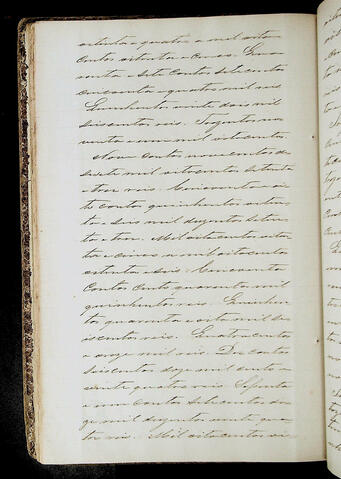 oitenta e quatro a mil oito
centos oitenta e cinco. Qua
renta e sete contos setecentos
cincoenta e quatro mil reis
Quinhentos vinte dois mil
seiscentos reis. Trezentos no
venta e um mil oitocentos
Nove contos novecentos de
sete mil oitocentos setenta
e tres reis. Cincoenta e oi
to contos quinhentos oiten
ta e seis mil duzentos seten
ta e tres. Mil oito centos oiten
ta e cinco a mil oitocentos
oitenta e seis. Cincoenta
contos cento quarenta mil
quinhentos reis. Quinhen
tos quarenta e oito mil se
iscentos reis. Quatrocentos
e onze mil reis. Dez contos
seiscentos doze mil cento e
vinte quatro reis. Sessenta
e um contos setecentos do
ze mil duzentos vinte qua
tro reis. Mil oitocentos oi